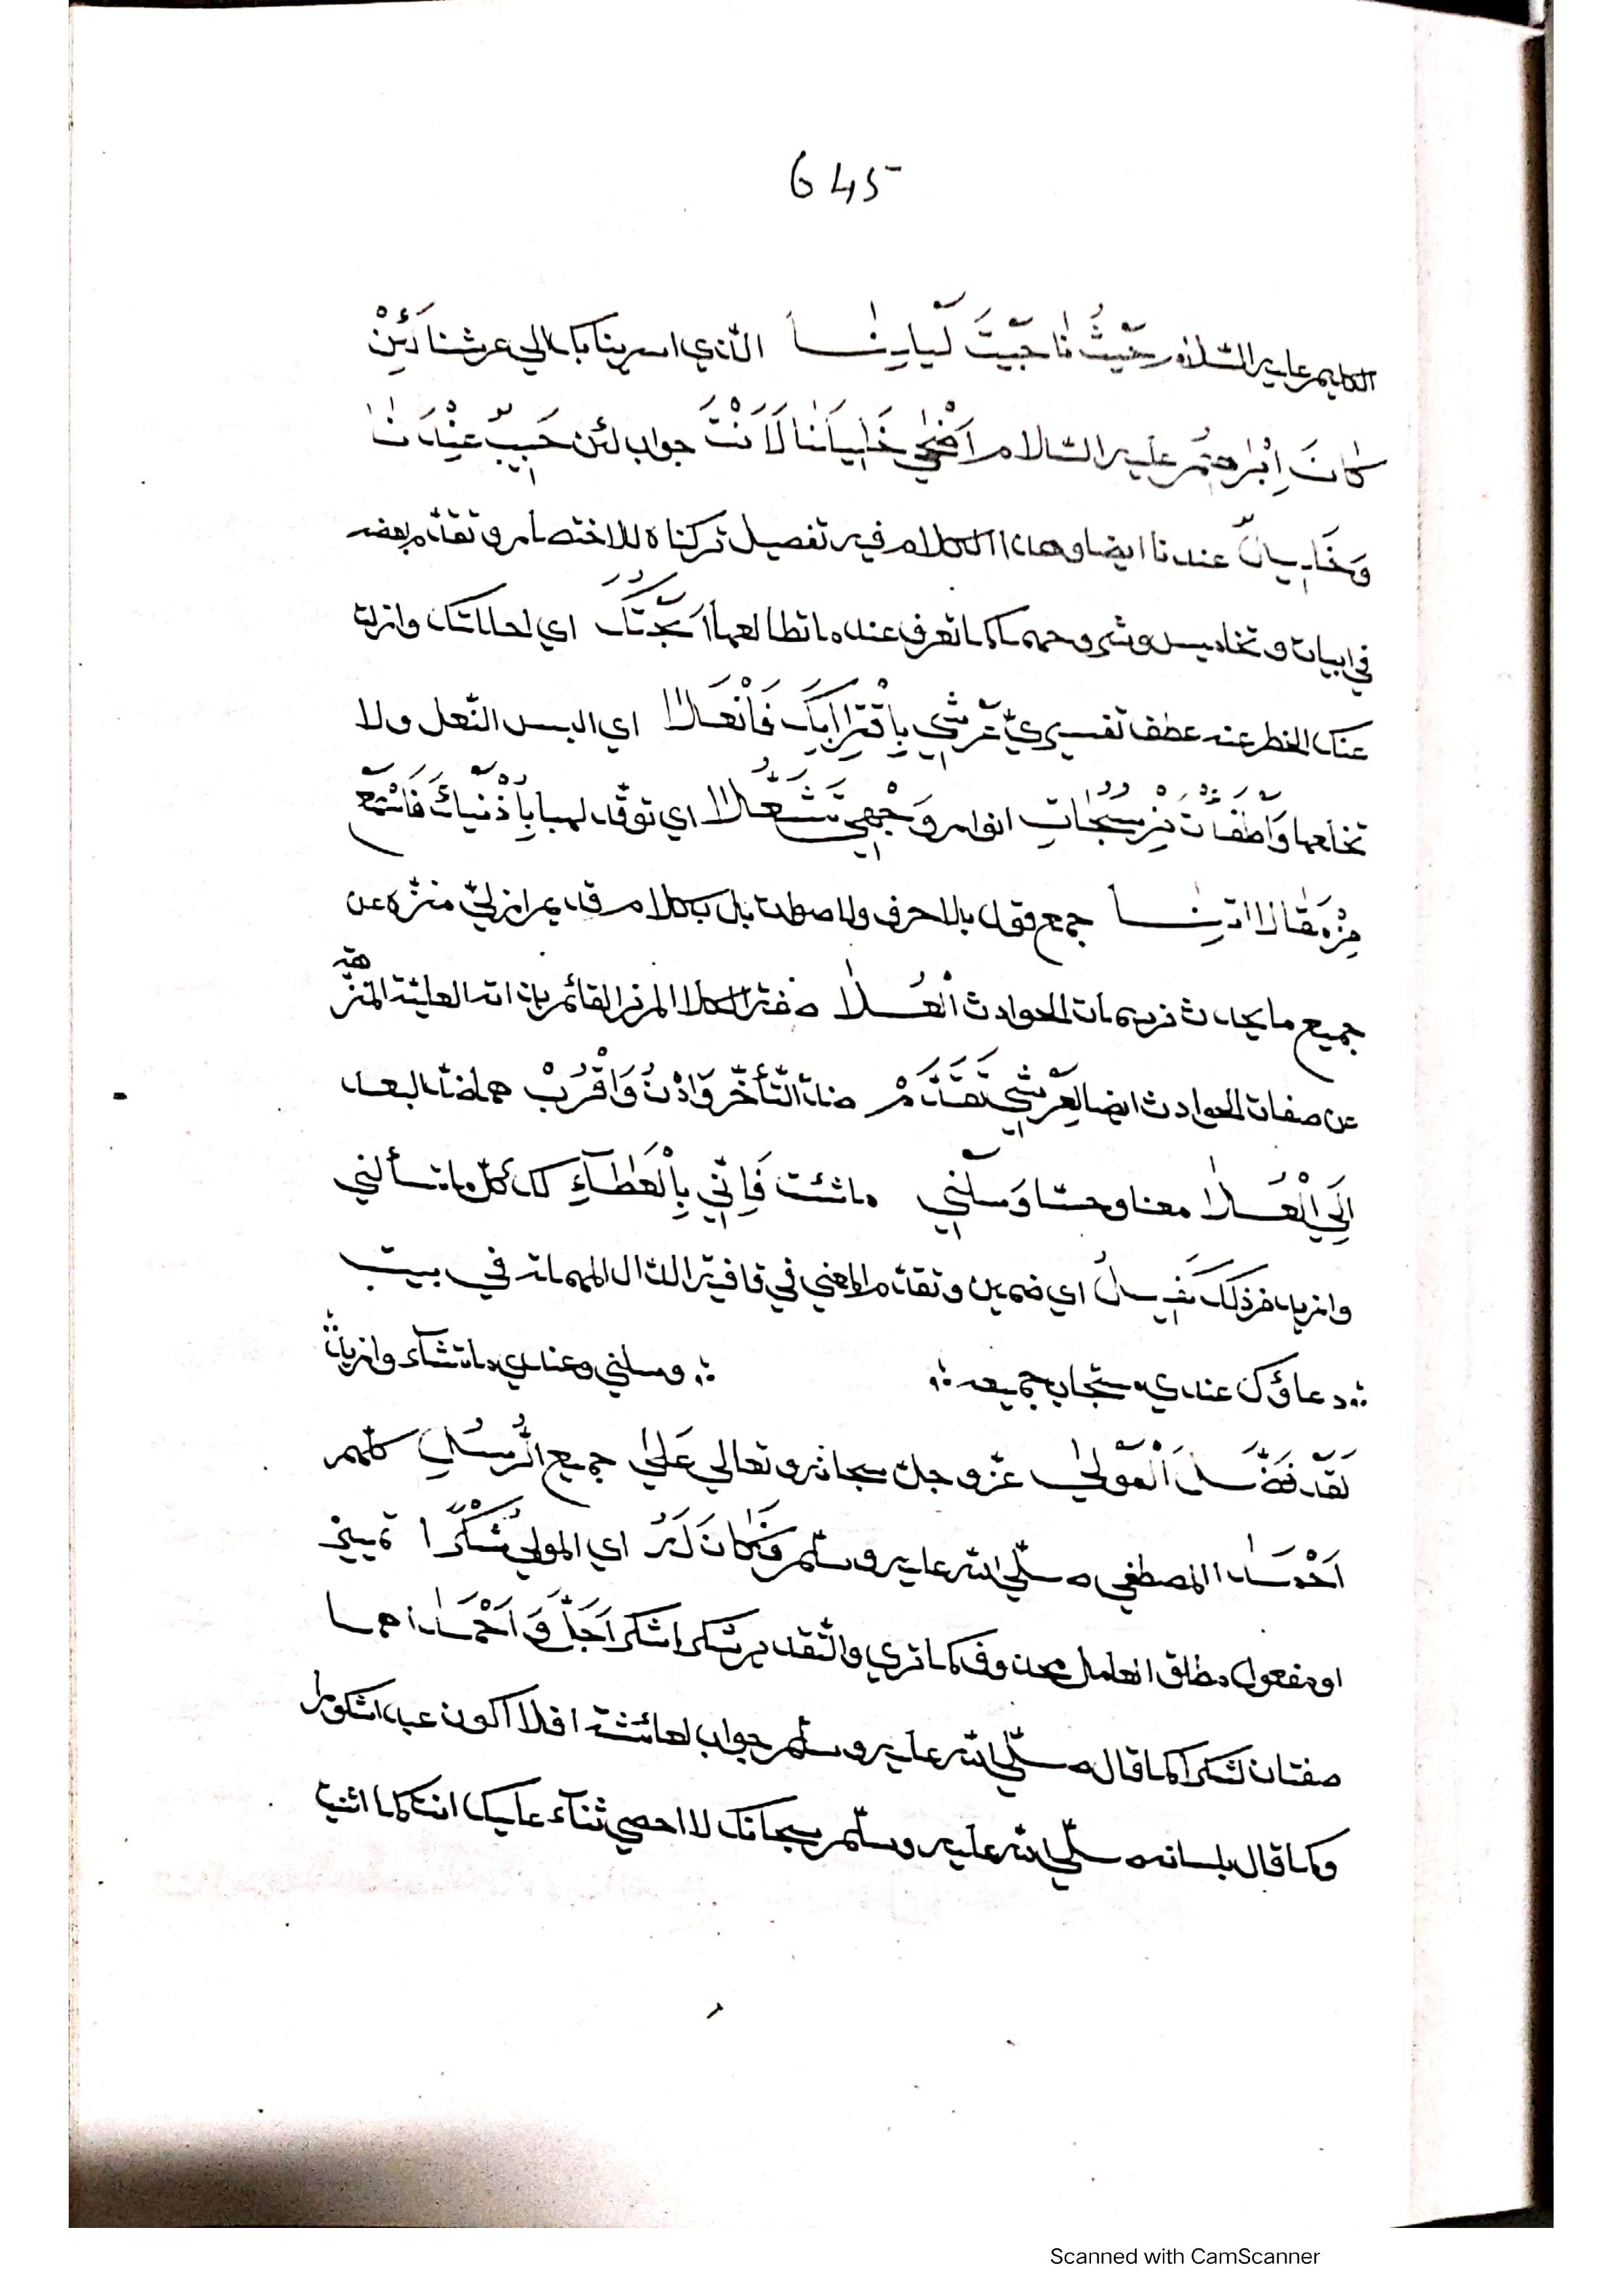 645
الكليم عليه السّلام حَيْثُ نَاجَيْتَ لَيْلَنَا الّذي اسرينا بك الي عرشنا لَئِنْ
كَانَ اِبْرَاهِيمُ عليه السّلام اَضْحٰي خَلِيلَنَا لَاَنْتَ جواب لئن حَبِيبٌ عِنْدَنَا
وَخَلِيلٌ عندنا ايضا وهذا الكلام فيه تفصيل تركناه للاختصار وتقدّم بعضه
في ابيات وتخاميس وشروحهما كما تعرف عند ما تطالعها اَبَحْتُكَ اي احللتك وازلت
عنك الخطر عنه عطف تفسيريّ عَرْشِي بِاقْتِرَابِكَ فَانْعَلَا اي البس النّعل ولا
تخلعها وَاُطْفَأْتُ مِنْ سُبُحَاتِ انوار وَجْهِي تَشَعُّلَا اي توقّد لهبا بِأُذْنَيْكَ فَاسْمَعْ
مِنْ مَقَالَاتِنَا جمع قول بلا حرف ولا صوت بل بكلام قديم ازليّ منزّه عن
جميع ما يحدث من سمات الحوادث الْعُلَا صفة الكلام القائم بذاته العليّة المنزّهة
عن صفات الحوادث ايضا لِعَرْشِي تَقَدَّمْ ضدّ التّأخّر وَادْنُ وَاقْرُبْ هما ضدّ البعد
اِلَي الْعُلَا معنا وحسّا وَسَلْنِي ما شئت فَاِنِّي بِالْعَطَآءِ لك كلّ ما تسألني
وازيد من ذٰلك كَفِيلُ اي ضمين وتقدّم المعني في قافية الدّال المهملة في بيت
؞ دعاؤك عندي مستجاب جميعه ؞ ؞ وسلني وعندي ما تشآء وازيد ؞
لَقَدْ فَضَّلَ الْمَوْلٰي عزّ وجلّ سبحانه وتعالي عَلٰي جميع الرُّسُلِ كلّهم
اَحْمَدَا المصطفي صلّي الله عليه وسلّم فَكَانَ لَهُ اي المولي شُكْرًا تمييز
او مفعول مطلق العامل محذوف كما تري والتّقدير شكرا شكرا اَجَلَّ وَاَحْمَدَا هما
صفتان لشكرا كما قال صلّي الله عليه وسلّم جواب لعائشة افلا اكون عبدا شكورا
وكما قال بلسانه صلّي الله عليه وسلّم سبحانك لا احصي ثنآء عليك انت كما اثنيت
Scanned with CamScanner